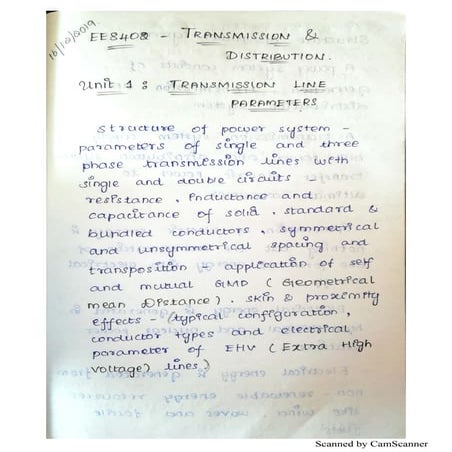 16/12/2019
EE8402 - TRANSMISSION &
DISTRIBUTION.
Unit 1 : TRANSMISSION LINE
PARAMETERS
Structure of power system -
parameters of single and three
phase transmission lines with
single and double circuits -
resistance, Inductance and
capacitance of solid, standard &
bundled conductors, symmetrical
and unsymmetrical spacing and
transposition - application of self
and mutual GMD ( Geometrical
mean Distance). skin & proximity
effects - (typical configuration,
conductor types and electrical
parameter of EHV ( Extra High
Voltage) lines.)
Scanned by CamScanner